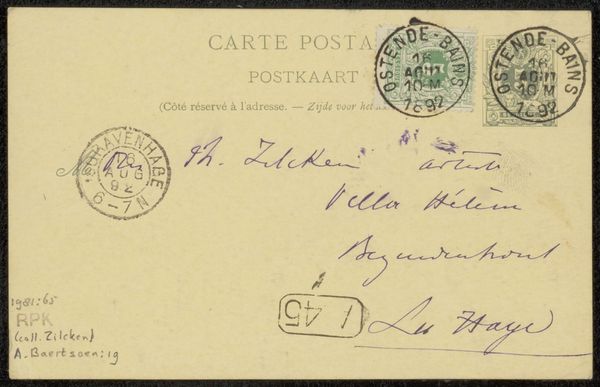 CARTE POSTA
POSTKAART
(Côté réservé à l'adresse. — Zijde voor het
OSTENDE-BAINS
16
AOUT
10-M
1892
OSTENDE-BAINS
16
AOUT
10-M
1892
'SGRAVENHAGE
16
AUG
92
6-7N
M
Ph. Zilcken artiste
Villa Hélène
Bezuidenhout
La Haye
1 45
1981:65
RPK
(coll. Zilcken)
A. Baertsoen:19